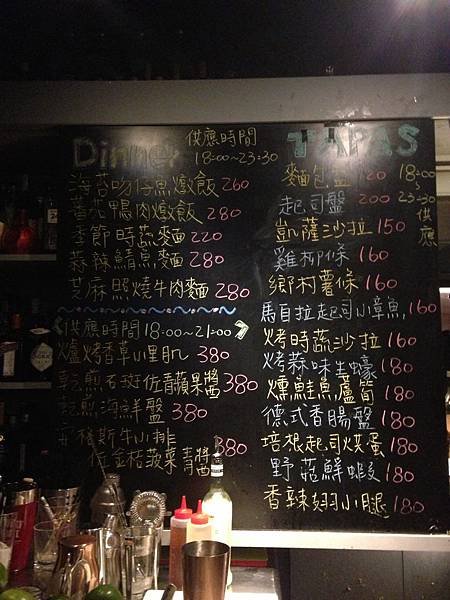 Dinner
供應時間
18:00~23:30
海苔吻仔魚燉飯 260
蕃茄鴨肉燉飯 280
季節時蔬麵 220
蒜辣鯖魚麵 280
芝麻照燒牛肉麵 280
供應時間18:00~21:00
爐烤香草小里肌 380
煎石斑佐青蘋果醬 380
煎海鮮盤 380
格斯牛小排
佐金桔菠菜青醬 380
TAPAS
18:00~23:30供應
麵包盤 120
起司盤 200
凱薩沙拉 150
雞柳條 160
鄉村薯條 160
馬自拉起司小章魚 160
烤時蔬沙拉 160
烤蒜味生蠔 180
燻鮭魚蘆筍 180
德式香腸盤 180
培根起司烘蛋 180
野菇鮮蝦 180
香辣翅小腿 180